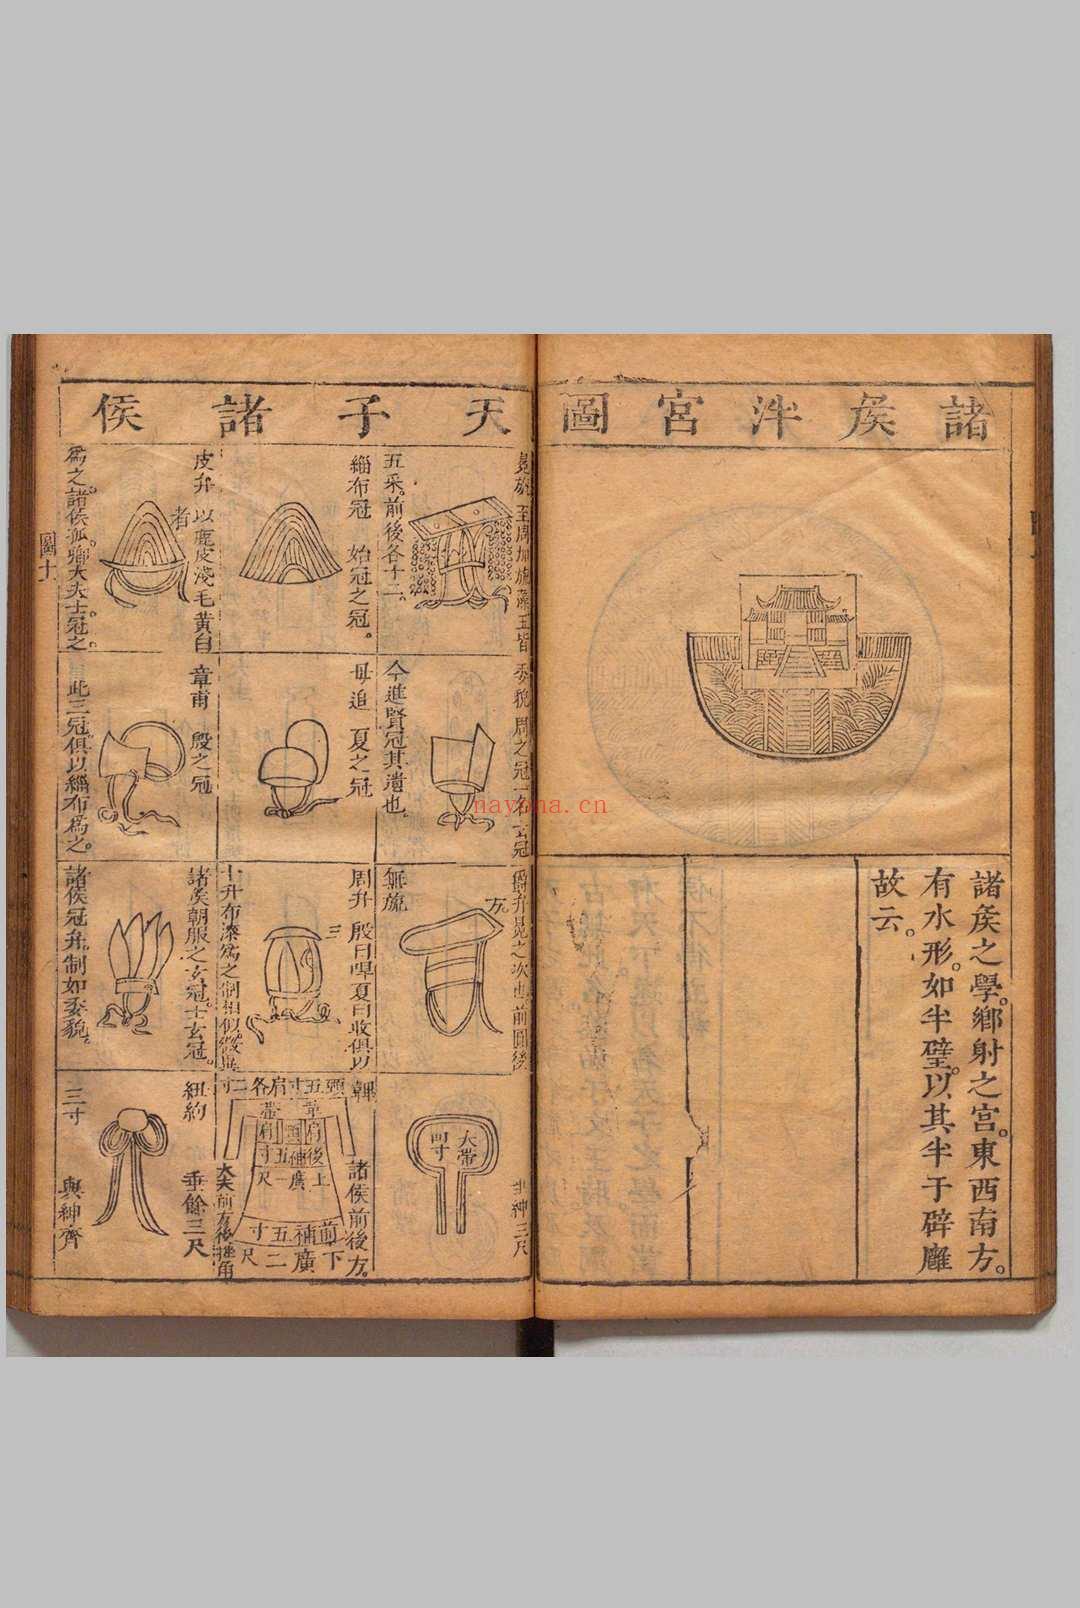 諸矦泮宮圖
諸矦之學。鄉射之宮。東西南方。
有水形。如半璧。以其半于辟廱
故云。
天子諸侯
冕旒 至周加旒藻玉皆
五采。前後各十二。
緇布冠 始冠之冠。
皮弁 以鹿皮淺毛黃白
者
為之。諸侯孤卿大夫士。冠之
圖十
委貌 周之冠 一名玄冠
今進賢冠其遺也。
毋追 夏之冠
章甫 殷之冠
此三冠俱以緇布為之。
爵弁冕之次也前圓後
方
無旒
周弁 殷曰冔夏曰收俱以
十升布漆為之制相似
諸矦朝服之玄冠。士玄冠。
諸侯冠弁。制如委貌。
大帶
四寸
紳三尺
韠
頭五寸肩各二寸
諸侯前後方。
下廣二尺
大夫前方後挫角
紐約
垂餘三尺
三寸
與紳齊
nayona.cn